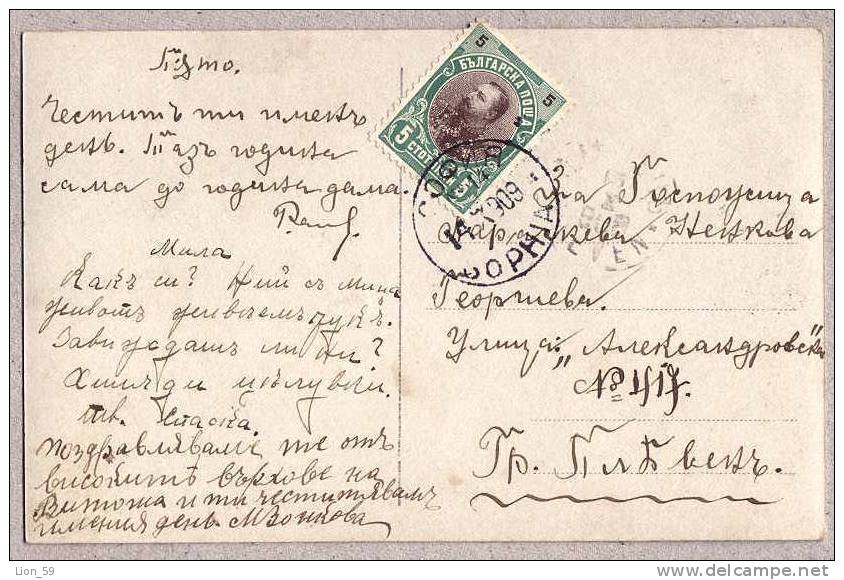 честитъ ти именъ
день. Тазъ година
сама до година дама.
Мила
Какъ си? Ний съ Мица
животъ живѣемъ тукъ.
Завиждашъ ли ни?
Хиляди цѣлувки.
тв. Спаска.
поздравлявамъ те отъ
високитѣ върхове на
Витоша и ти честитявамъ
имения день
5 БЪЛГАРСКА ПОЩА 5
5 СТОТ
СОФИЯ
909
На Госпожица
Ненкова
Георгиева.
Улица: „Александровска
№
Гр. Плѣвенъ.
Lion_59
delcampe.net